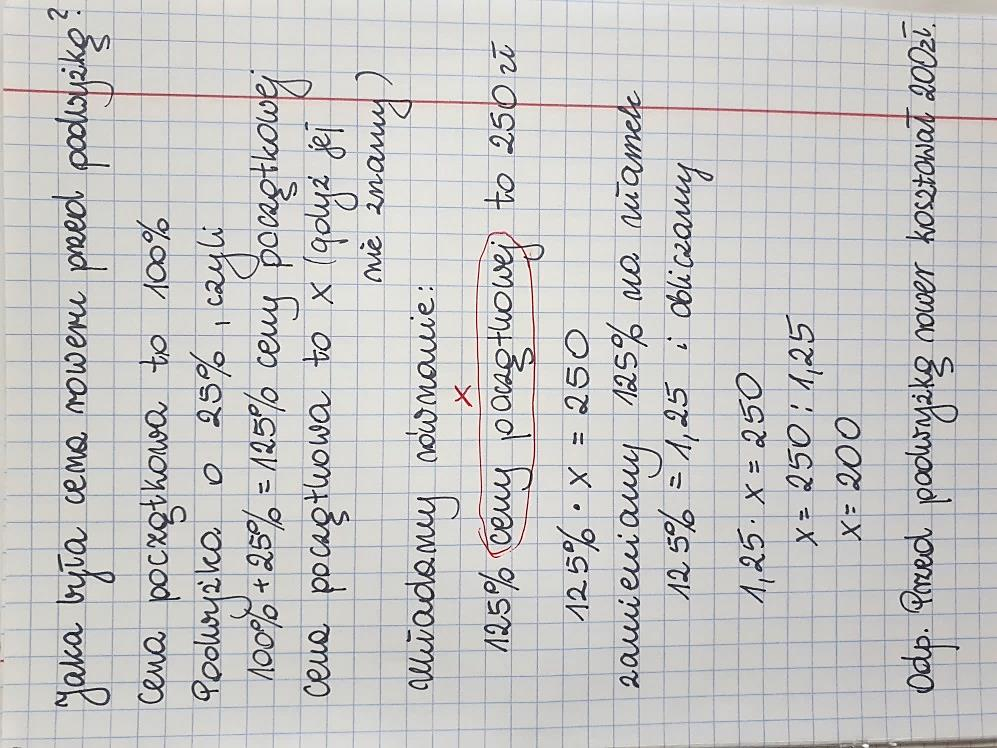 Jaka była cena roweru przed podwyżką?
Cena początkowa to 100%
Podwyżka o 25%, czyli
100% + 25% = 125% ceny początkowej
cena początkowa to x (gdyż jej
nie znamy)
układamy równanie:
x
125% ceny początkowej to 250 zł
125% · x = 250
zamieniamy 125% na ułamek
125% = 1,25 i obliczamy
1,25 · x = 250
x = 250 : 1,25
x = 200
Odp. Przed podwyżką rower kosztował 200zł.